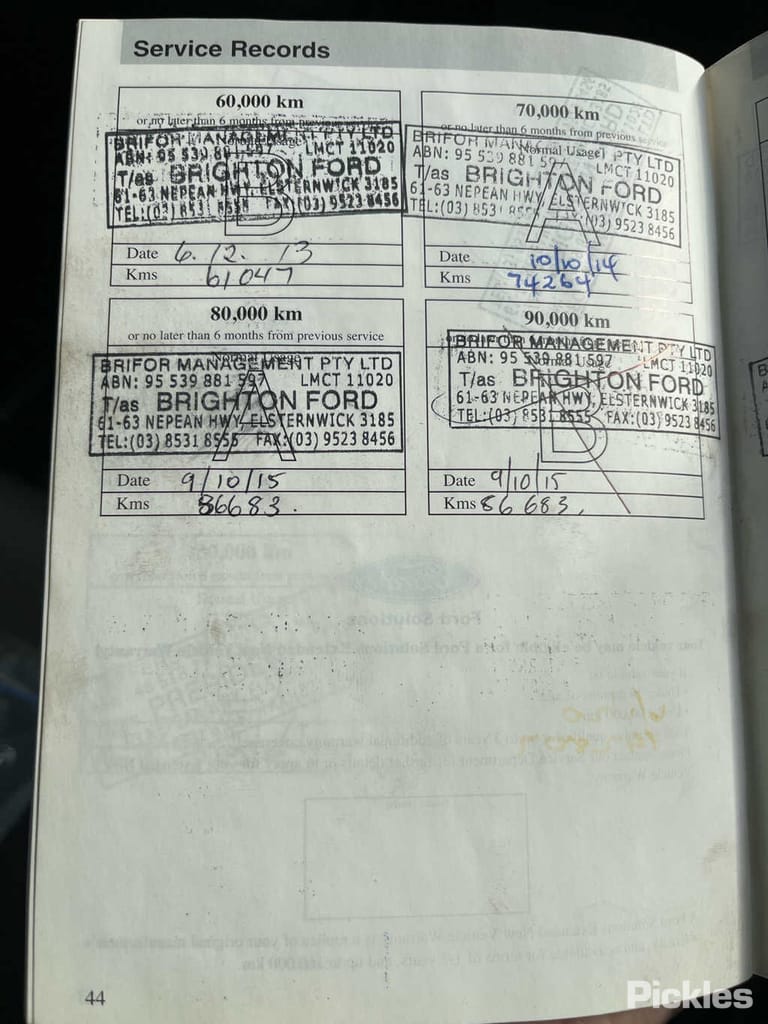 Service Records
60,000 km
or no later than 6 months from previous service
BRIFOR MANAGEMENT PTY LTD
ABN: 95 539 881 597 LMCT 11020
T/as BRIGHTON FORD
61-63 NEPEAN HWY, ELSTERNWICK 3185
TEL:(03) 8531 8555 FAX:(03) 9523 8456
B
Date 6. 12. 13
Kms 61047
70,000 km
or no later than 6 months from previous service
Normal Usage
BRIFOR MANAGEMENT PTY LTD
ABN: 95 539 881 597 LMCT 11020
T/as BRIGHTON FORD
61-63 NEPEAN HWY, ELSTERNWICK 3185
TEL:(03) 8531 8555 FAX:(03) 9523 8456
A
Date 10/10/14
Kms 74264
80,000 km
or no later than 6 months from previous service
Normal Usage
BRIFOR MANAGEMENT PTY LTD
ABN: 95 539 881 597 LMCT 11020
T/as BRIGHTON FORD
61-63 NEPEAN HWY, ELSTERNWICK 3185
TEL:(03) 8531 8555 FAX:(03) 9523 8456
A
Date 9/10/15
Kms 86683.
90,000 km
BRIFOR MANAGEMENT PTY LTD
ABN: 95 539 881 597 LMCT 11020
T/as BRIGHTON FORD
61-63 NEPEAN HWY, ELSTERNWICK 3185
TEL:(03) 8531 8555 FAX:(03) 9523 8456
B
Date 9/10/15
Kms 86683.
44
Pickles